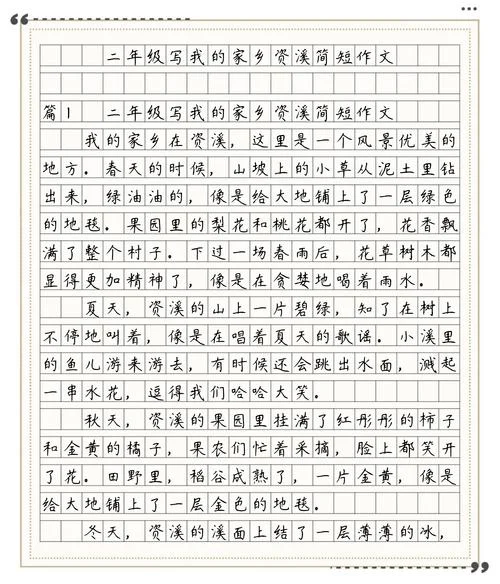 二年级写我的家乡资溪简短作文
篇1 二年级写我的家乡资溪简短作文
我的家乡在资溪，这里是一个风景优美的
地方。春天的时候，山坡上的小草从泥土里钻
出来，绿油油的，像是给大地铺上了一层绿色
的地毯。果园里的梨花和桃花都开了，花香飘
满了整个村子。下过一场春雨后，花草树木都
显得更加精神了，像是在贪婪地喝着雨水。
夏天，资溪的山上一片碧绿，知了在树上
不停地叫着，像是在唱着夏天的歌谣。小溪里
的鱼儿游来游去，有时候还会跳出水面，溅起
一串水花，逗得我们哈哈大笑。
秋天，资溪的果园里挂满了红彤彤的柿子
和金黄的橘子，果农们忙着采摘，脸上都笑开
了花。田野里，稻谷成熟了，一片金黄，像是
给大地铺上了一层金色的地毯。
冬天，资溪的溪面上结了一层薄薄的冰，